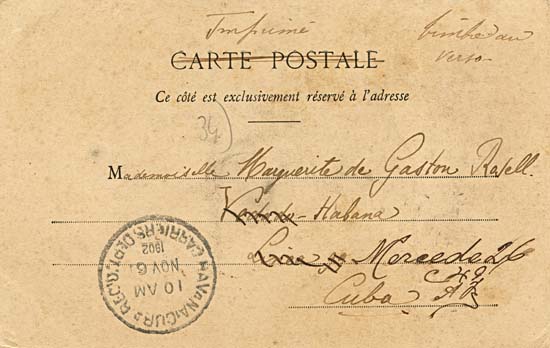 Imprimé
timbre au
verso
CARTE POSTALE
Ce côté est exclusivement réservé à l'adresse
34
Mademoiselle Marguerite de Gaston Rosell.
Vedado - Habana
Mercede 26
Cuba
HAVANA CUBA REC'D
CARRIERS DEPT.
10 AM
NOV 6
1902